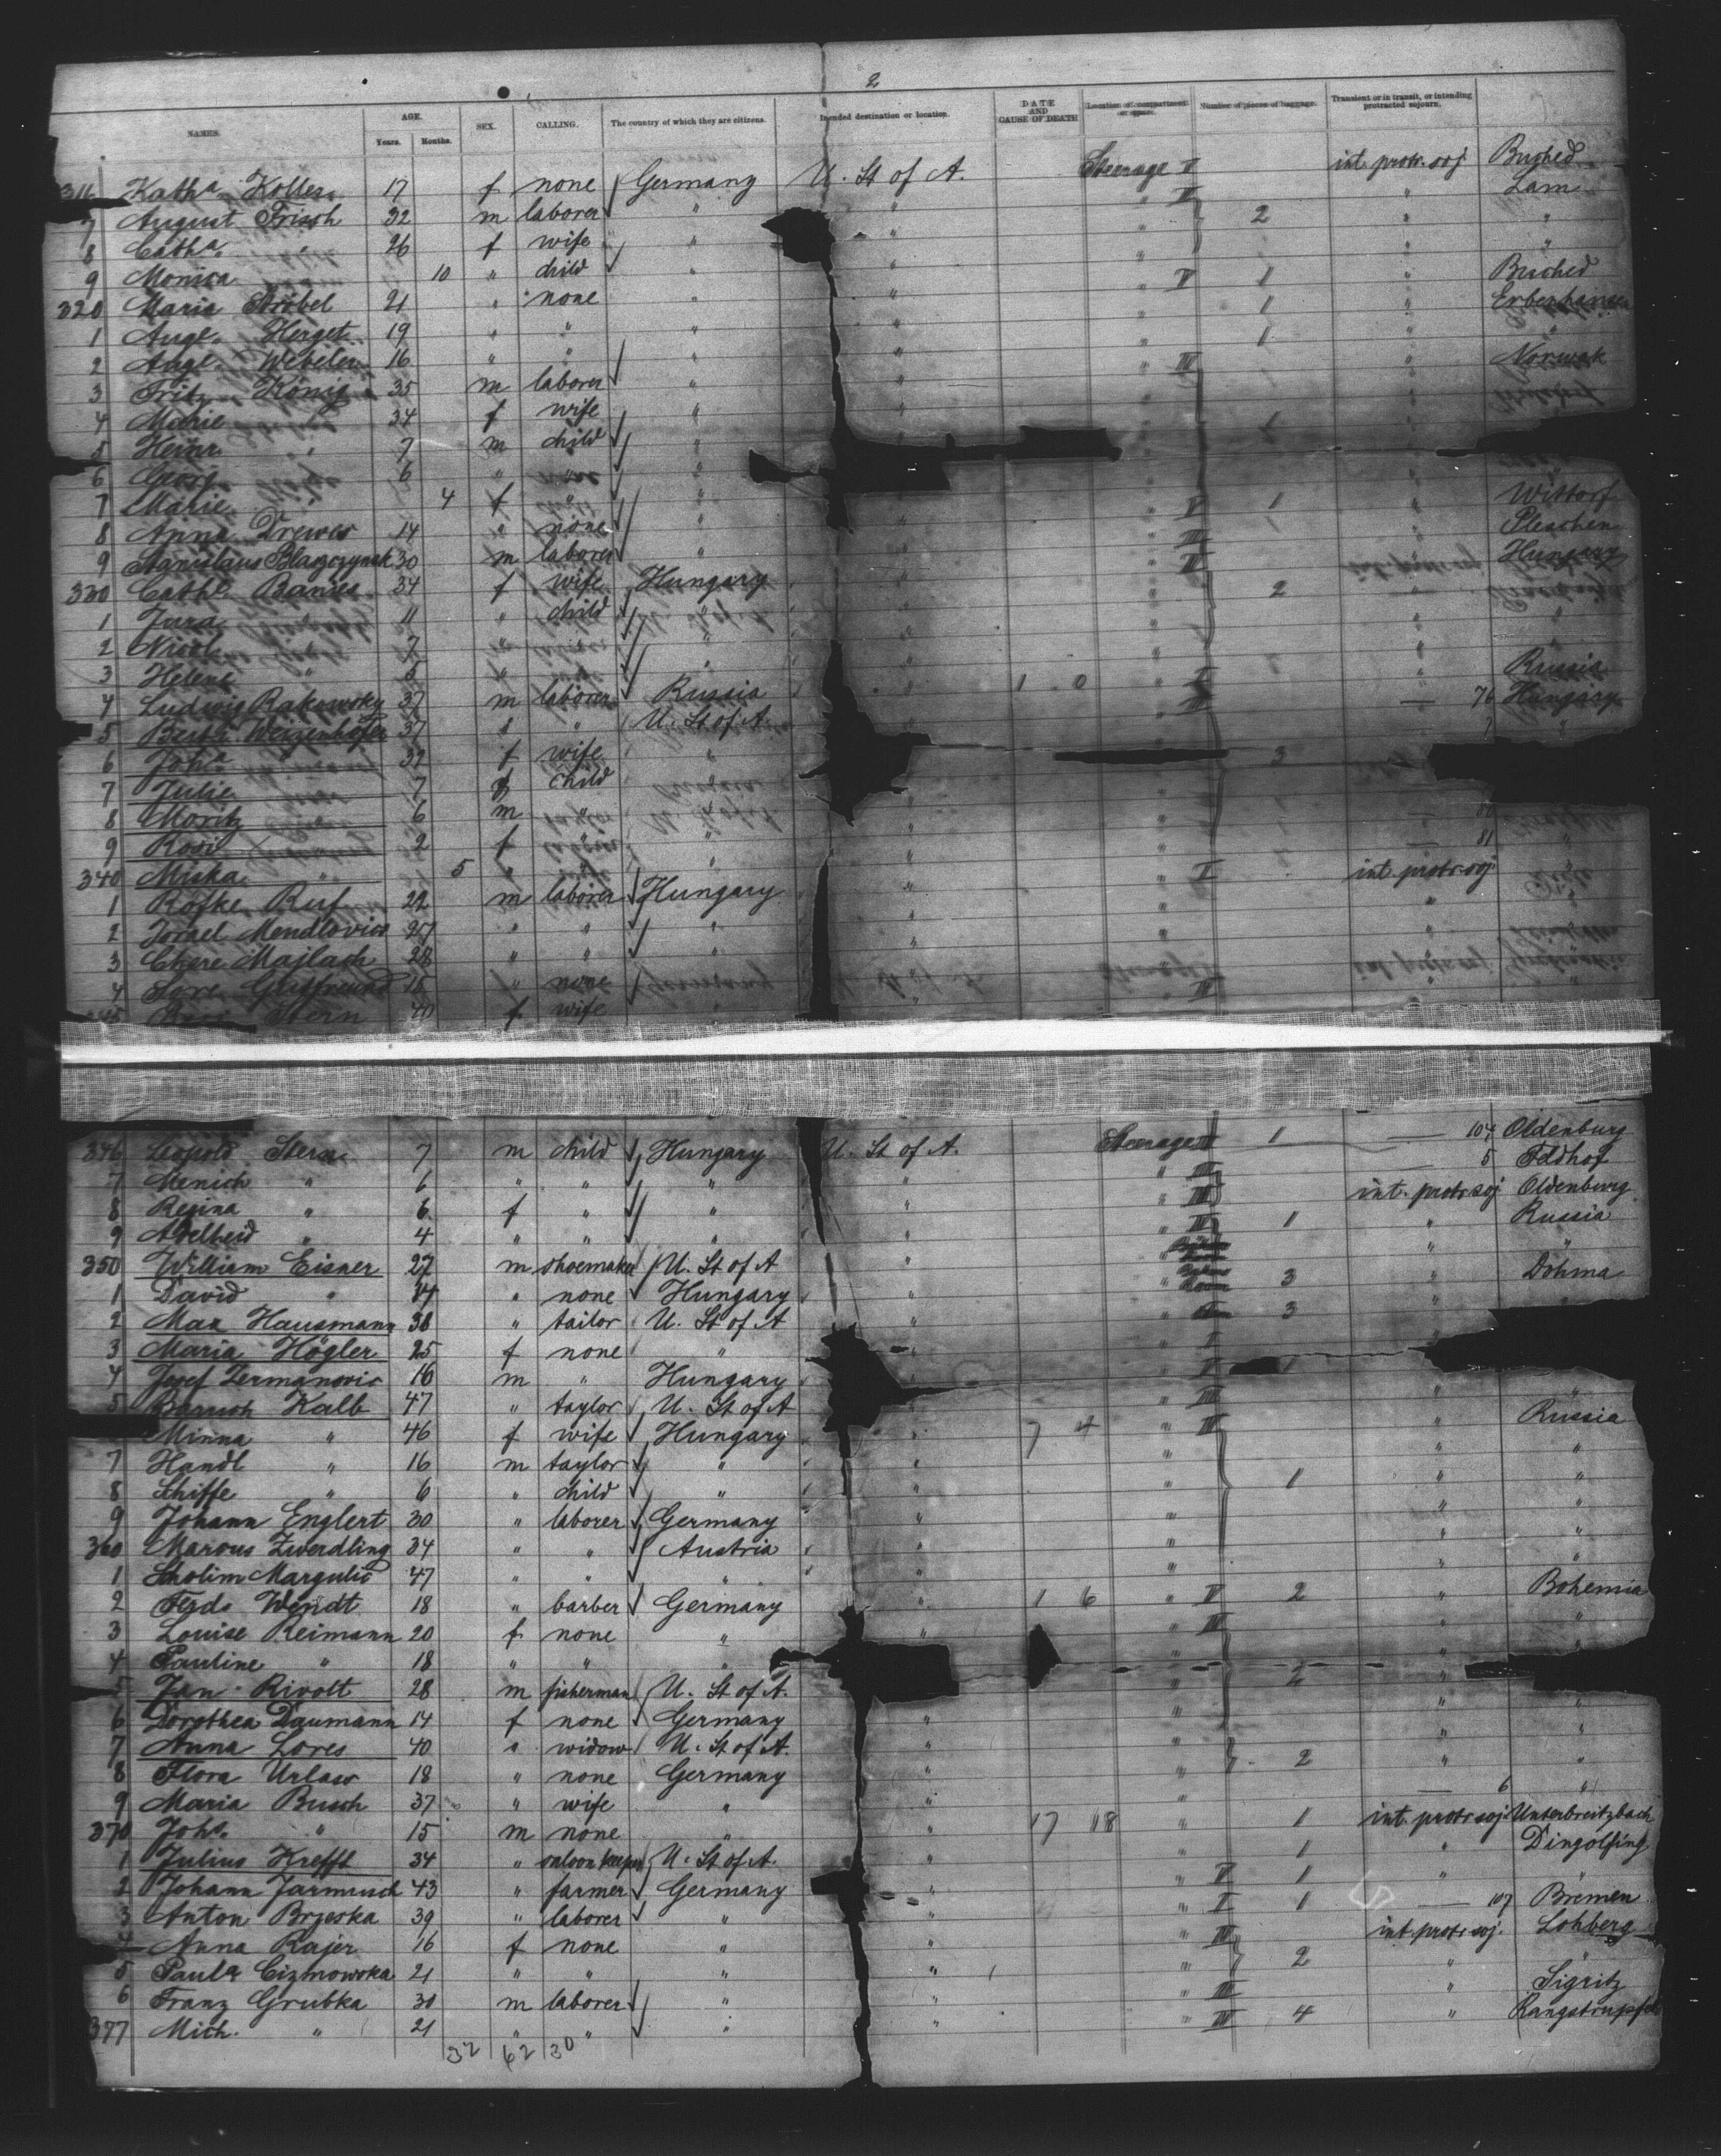 2
NAMES. AGE. Years. Months. SEX. CALLING. The country of which they are citizens. Intended destination or location. DATE AND CAUSE OF DEATH Location of compartment or space. Number of pieces of baggage. Transient or in transit, or intending protracted sojourn.
316 Kath^a Koller 17 f none Germany U. St of A. Steerage V int. protr. soj Buched
7 August Frisch 32 m laborer " " " II 2 " Lam
8 Cath^a " 26 f wife " " " " "
9 Monica " 10 " child " " " " "
320 Maria Ströbel 21 " none " " " V 1 " Buched
1 Auge. Herget 19 " " " " " 1 " Erbenhausen
2 Auge. 16 " " " " " 1 " "
3 Fritz König 35 m laborer " " " III " Norwak
4 Marie " 34 f wife "
5 Heinr. " 7 m child "
6 Georg " 6 " " "
7 Marie " 4 f " "
8 Anna Drewes 14 " none " " " V 1 " Wittorf
9 Stanislaus Blaszczynsk 30 m laborer " " " III " Pleschen
330 Cathe. Banies 34 f wife Hungary " " II 2 " Hungary
1 Jura " 11 " child " "
2 Nicol " 7 " " "
3 Helene " 5 " " "
4 Ludwig Rakowsky 37 m laborer Russia " 1 0 " I Russia
5 Weizenhofer 37 " " U. St of A. " III 76 Hungary
6 Joh^a " 39 f wife " 3 7 "
7 Julie " 7 f child "
8 Moritz " 6 m " "
9 Rosi " 2 f " " "
340 Miska " 5 " " " " 81 "
1 Rofke Ruf 22 m laborer Hungary " " I int. protr. soj "
2 Israel Mendlovics 25 " " " " " "
3 Chere Majlach 28 " " " " " "
4 Sore 18 " none " " " "
345 Stern 40 f wife " " III
346 Leopold Stern 7 m child Hungary U. St of A. Steerage II 1 104 Oldenburg
7 Menich " 6 " " " " " III 5 Feldhof
8 Regina " 6 f " " " " III int. protr. soj Oldenburg
9 Adelheid " 4 " " " " " III 1 " Russia
350 William Eisner 27 m shoemaker U. St of A " " " "
1 David " 14 " none Hungary " " 3 " Dohma
2 Max Hausmann 38 " tailor U. St of A " " 3 "
3 Maria Högler 25 f none " " " I "
4 Josef Zermanovic 16 m " Hungary " V 1
5 Baruch Kalb 47 " taylor U. St of A III " "
Minna " 46 f wife Hungary " 7 4 " III " Russia
7 Handl " 16 m taylor " " " " "
8 Schiffe " 6 " child " " " 1 " "
9 Johann Englert 30 " laborer Germany " " " "
360 Marcus Zwerdling 34 " " Austria " " " "
1 Scholim Margulis 47 " " " " " " "
2 Ferd. Wendt 18 " barber Germany " 1 6 " V 2 " Bohemia
3 Louise Reimann 20 f none " " III " "
4 Pauline " 18 " " " "
5 Jan Rivolt 28 m fisherman U. St of A. " 2 "
6 Dorothea Daumann 14 f none Germany " " " "
7 Anna Lores 40 " widow U. St of A. " " " "
8 Flora Urlass 18 " none Germany " " 2 " "
9 Maria Busch 37 " wife " " " 6 "
370 Johs. " 15 m none " " 17 18 " 1 int. protr. soj. Unterbreitzbach
1 Julius Krefft 34 " saloon keeper U. St of A. " " 1 " Dingolfing
2 Johann Jarmusch 43 " farmer Germany " " V 1 "
3 Anton Brzeska 39 " laborer " " " I 1 107 Bremen
4 Anna Rajer 16 f none " " " III int. protr. soj. Lohberg
5 Paula Cizmowska 21 " " " " " 2 "
6 Franz Grubka 30 m laborer " " " III " Sigritz
377 Mich. " 21 " " " " " III 4 "
32 62 30